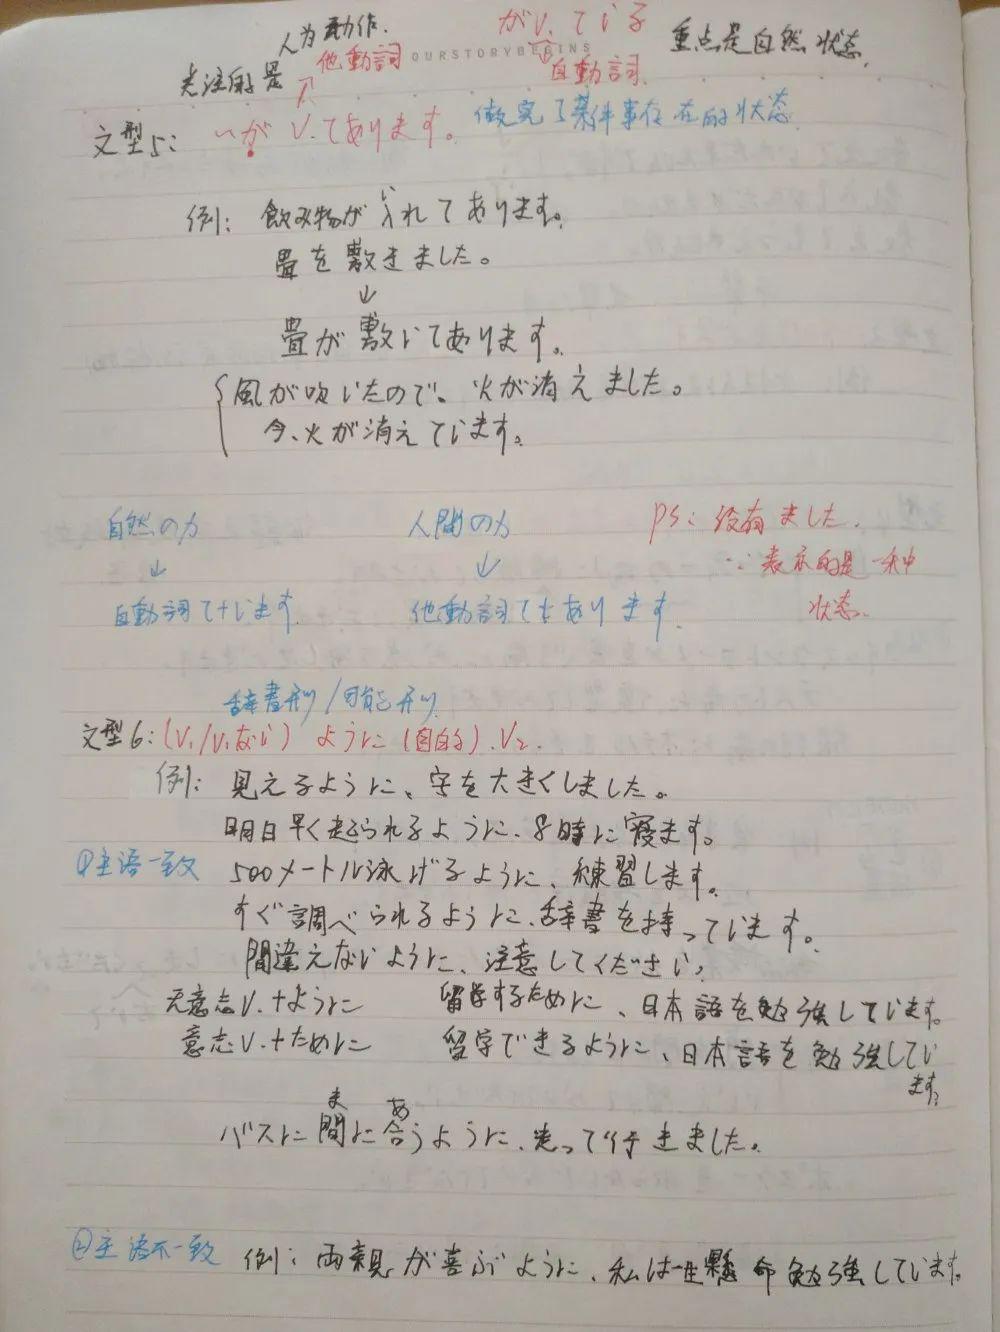 人为動作.
がV.ている
重点是自然状态.
关注的是
他動詞
OURSTORYBEGINS
自動詞.
文型5:
〜がV.てあります。
做完了某件事存在的状态
い
例: 飲み物が入れてあります。
畳を敷きました。
↓
畳が敷いてあります。
風が吹いたので、火が消えました。
今、火が消えています。
自然の力
人間の力
PS: 没有ました.
↓
↓
∵表示的是一种
自動詞て+います.
他動詞て+あります.
状态.
辞書形/可能形
文型6:(V₁/V₁ない) ように(目的).V₂.
例: 見えるように、字を大きくしました。
明日早く起られるように、8時に寝ます。
①主语一致
500メートル泳げるように、練習します。
すぐ調べられるように、辞書を持っています。
間違えないように、注意してください。
无意志V.+ように
留学するために、日本語を勉強しています。
意志V.+ために
留学できるように、日本語を勉強してい
ます。
ま あ
バスに間に合うように、走って行きました。
②主语不一致
例: 両親が喜ぶように、私は一生懸命勉強しています。